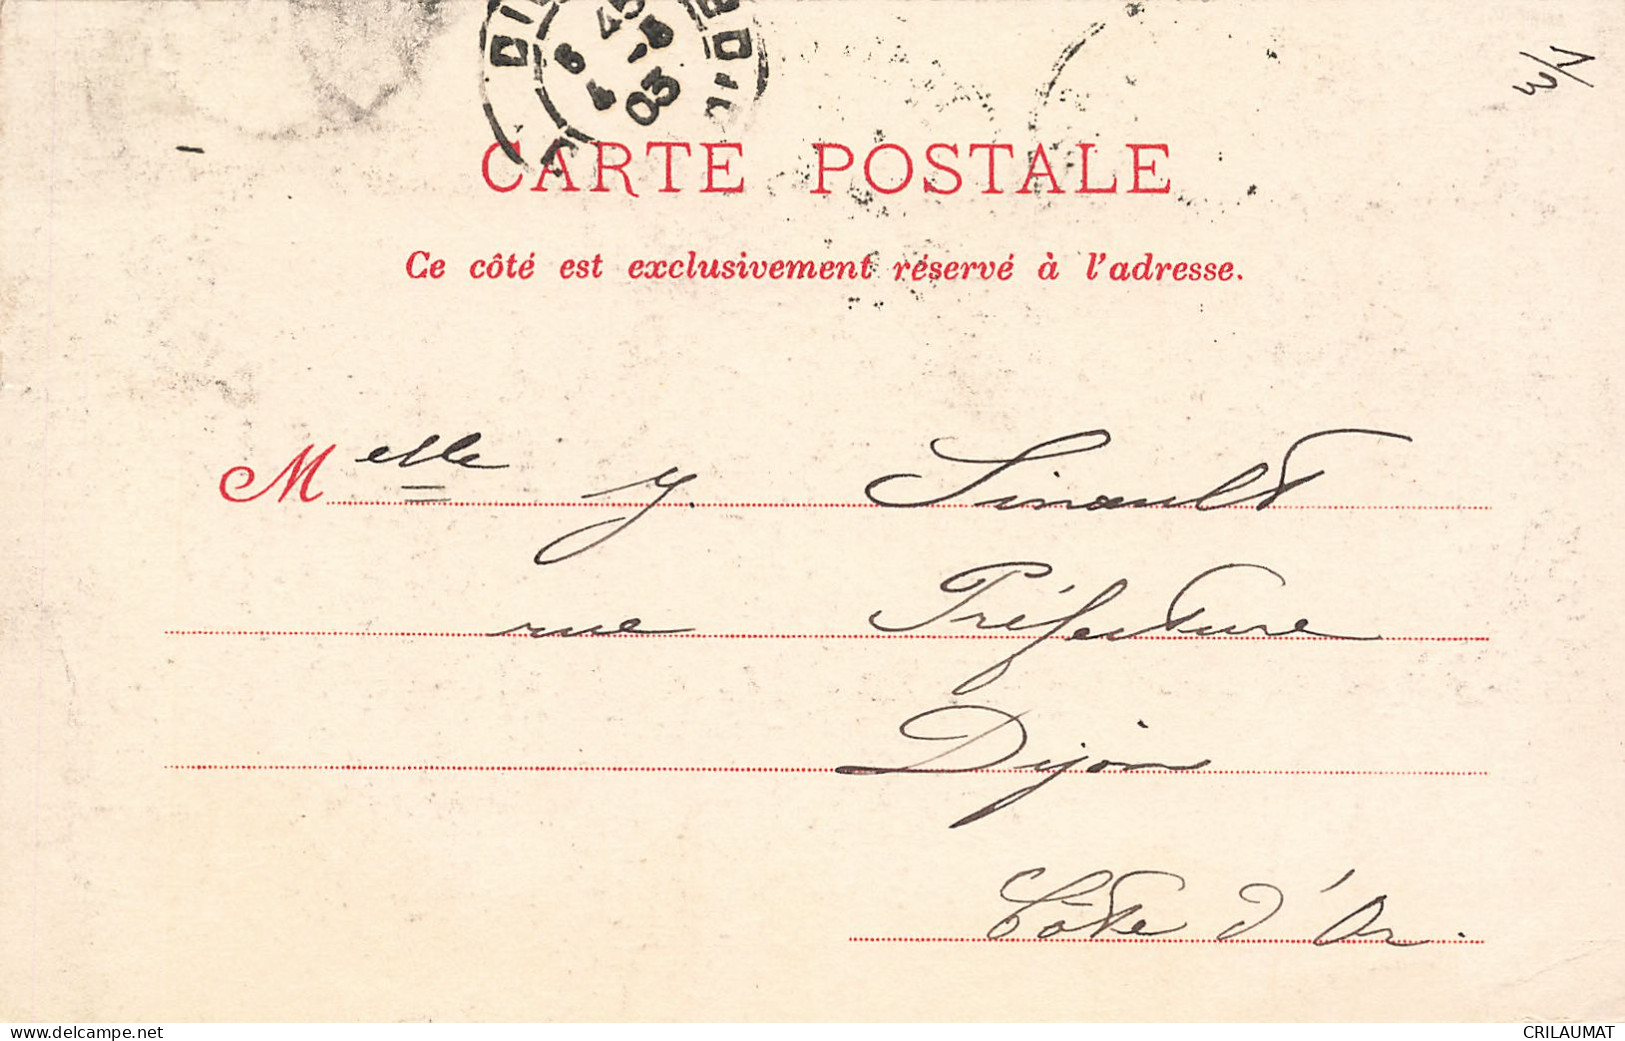 45
8 4 -8
03
3/1
CARTE POSTALE
Ce côté est exclusivement réservé à l'adresse.
Melle Y. Sinault
rue Préfecture
Dijon
Côte d'Or.
www.delcampe.net
CRILAUMAT